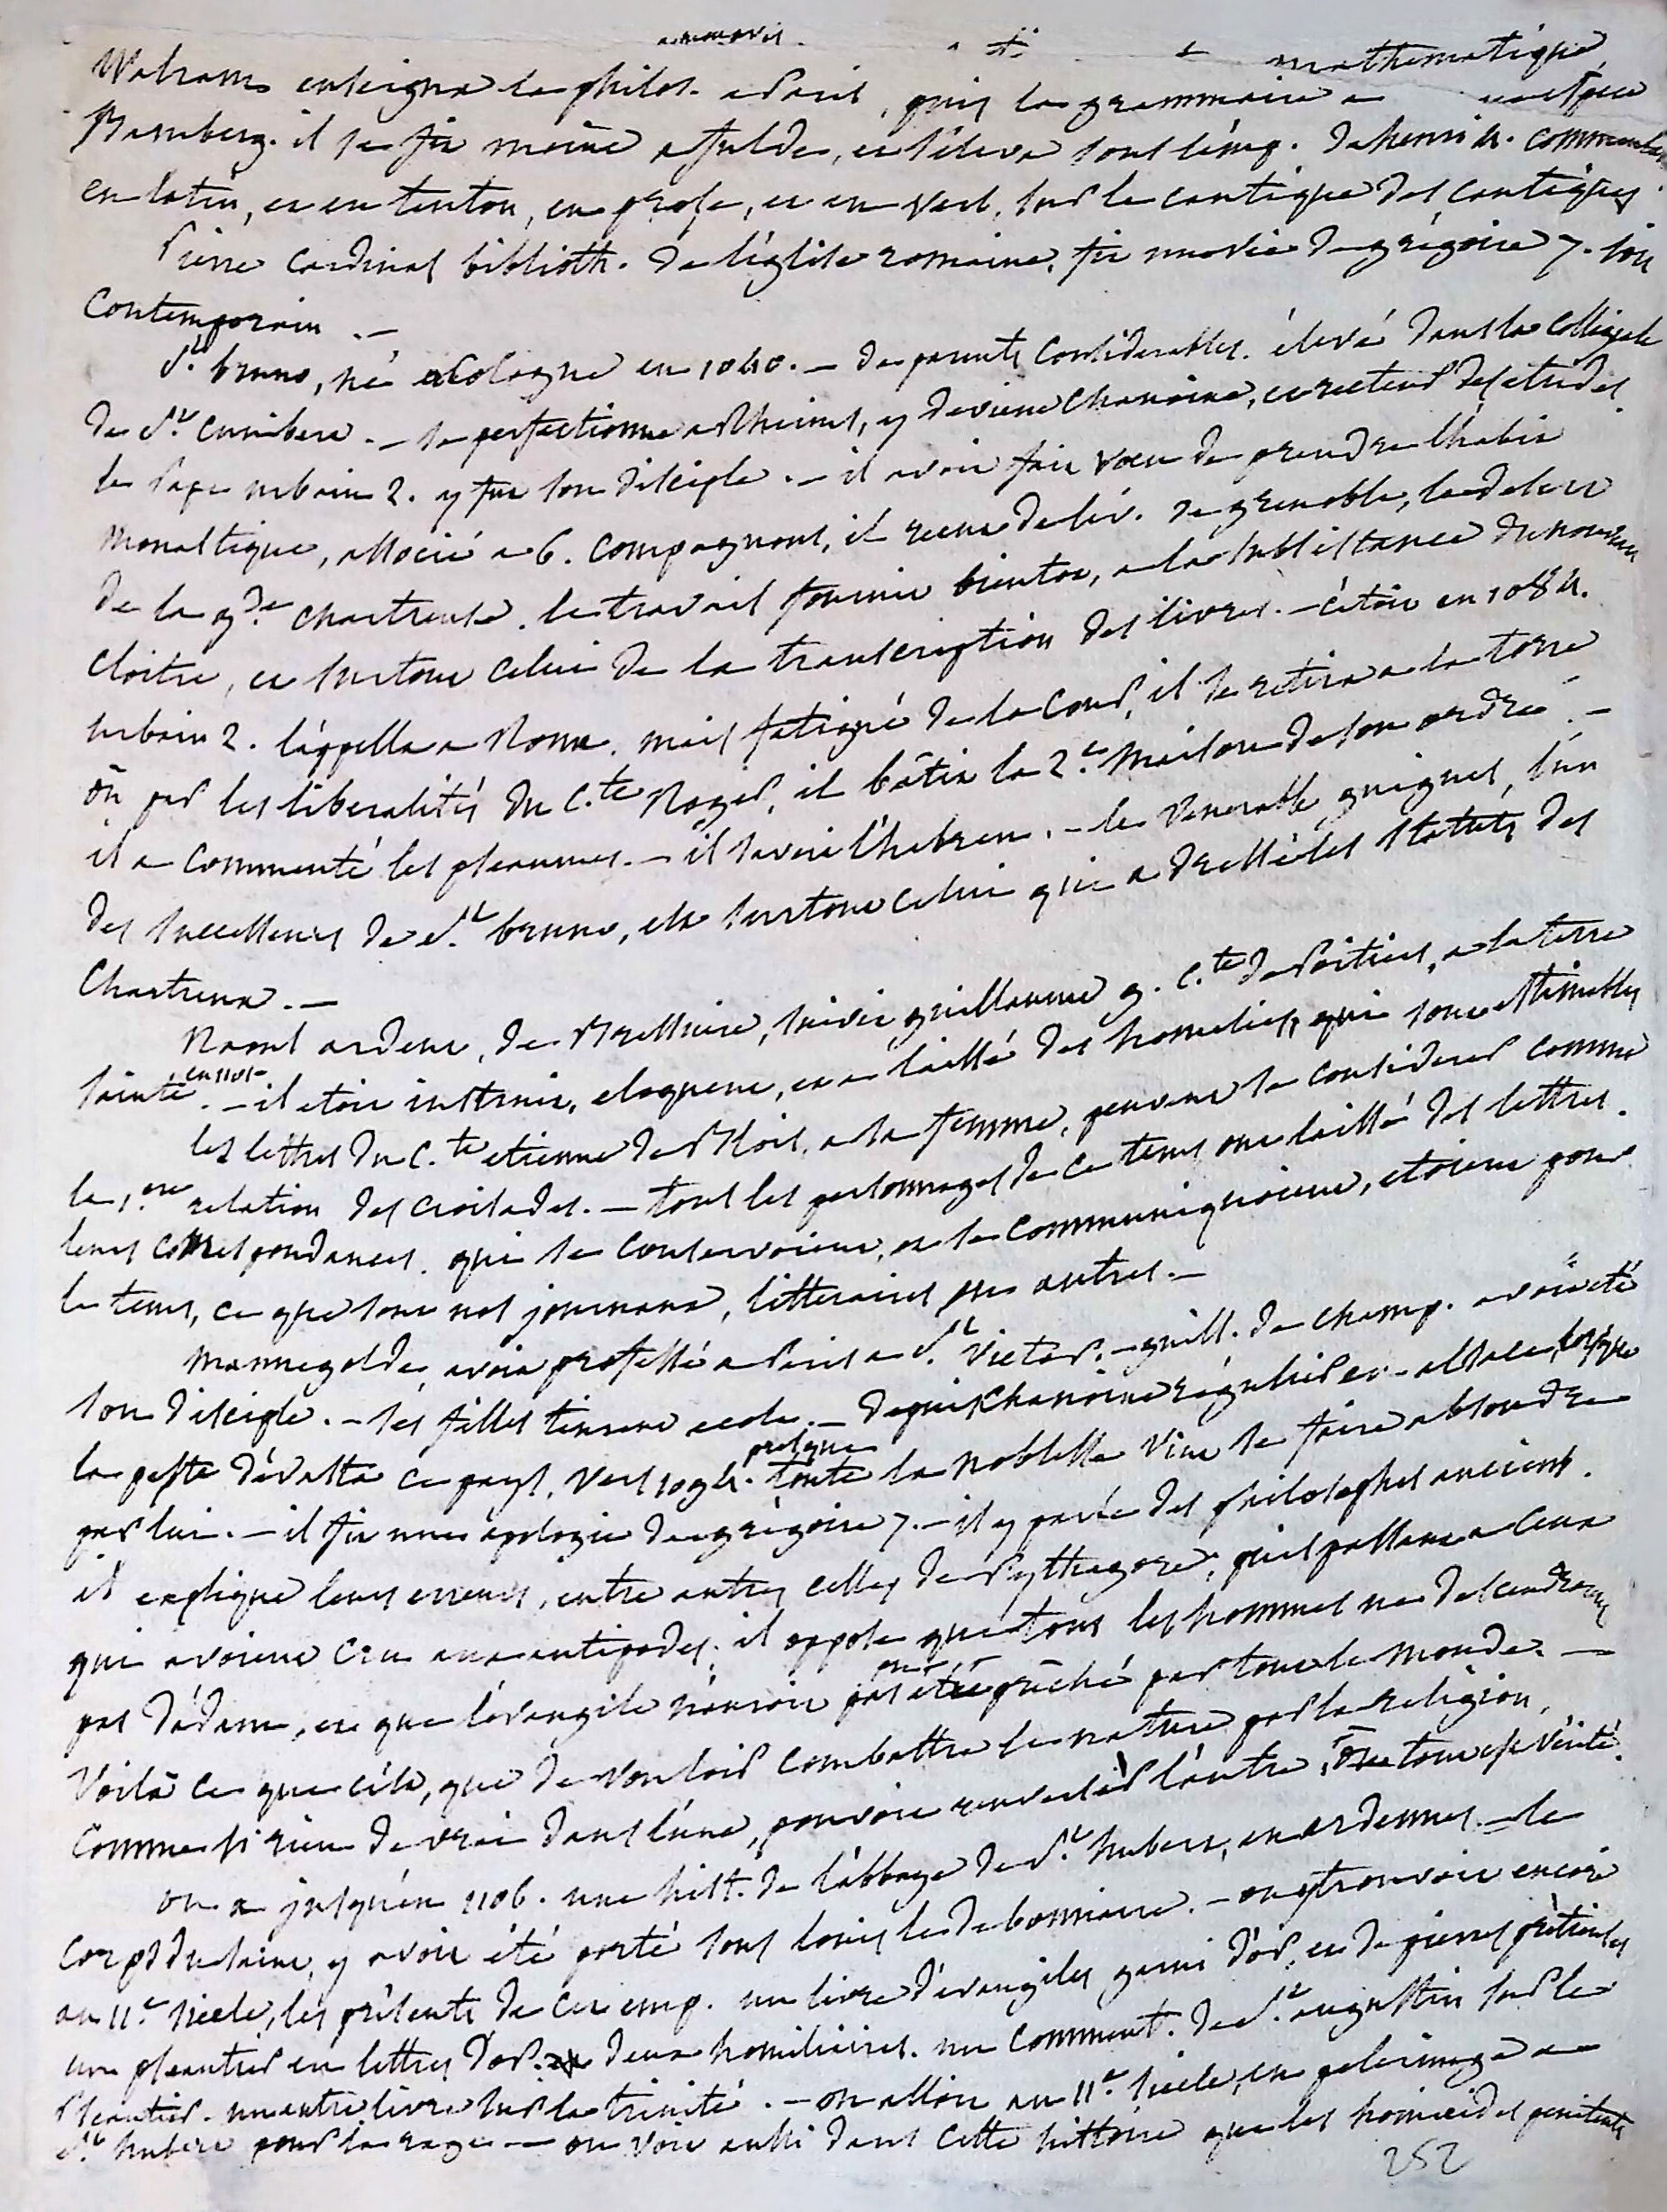 mathematique
Walram enseigna la philos. a Paris, puis la grammaire a
Bamberg. il se fit moine a fulde, et s'éleva sous l'emp. de henri 4. commenta
en latin, et en teuton, en prose, et en vers, sur le cantique des cantiques
Pierre cardinal biblioth. de l'église romaine, fit une vie de grégoire 7. son
Contemporain. —
St. bruno, né a Cologne en 1040. — de parents considerables. élevé dans la collégiale
de St. cunibert. — se perfectionne a Rheims, y devient chanoine, et recteur des etudes
le Pape urbain 2. y fut son disciple. — il avoit fait voeu de prendre l'habit
monastique, associé a 6. compagnons, il recut de l'év. de grenoble, le desert
de la gde. chartreuse. le travail fournit bientot, a la subsistance du nouveau
cloitre, et surtout celui de la transcription des livres. — c'étoit en 1084.
urbain 2. l'appella a Rome. mais fatigué de la Cour, il se retira a la torre
où par les liberalités du C.te Roger, il bâtit la 2.e maison de son ordre. —
il a commenté les pseaumes. — il savoit l'hebreu. — le venerable guigues, l'un
des successeurs de St. bruno, est surtout celui qui a dressé les statuts des
Chartreux. —
Raoul ardent, de Bressuire, suivit guillaume 9. C.te de Poitiers, a la terre
sainte en 1101. — il etoit instruit, eloquent, et a laissé des homelies, qui sont estimables
les lettres du C.te etienne de Blois, a sa femme, peuvent se considerer comme
la 1.ere relation des croisades. — tous les personnages de ce tems ont laissé des lettres.
leurs correspondances, qui se conservoient, et se communiquoient, etoient pour
le tems, ce que sont nos journaux, litteraires ou autres. —
Mannegolde, avoit professé a Paris a St. Victor. — guill. de champ. avoit été
son disciple. — ses filles tinrent ecole. — depuis chanoine régulier en alsace, lorsque
la peste dévasta ce pays, vers 1094. presque toute la noblesse vint se faire absoudre
par lui. — il fit une apologie de grégoire 7. — il y parle des philosophes anciens.
il explique leurs erreurs, entre autres celles de Pythagore, puis passant a ceux
qui avoient cru aux antipodes, il oppose que tous les hommes ne descendroient
pas d'adam, et que l'évangile n'auroit pas été prêché par tout le monde. —
Voilà ce que c'est, que de vouloir combattre la nature par la religion,
comme si rien de vrai dans l'une, pouvoit renverser l'autre, où tout est vérité.
on a jusqu'en 1106. une hist. de l'abbaye de St. hubert, en ardennes. — le
corps du saint, y avoit été porté sous louis le debonnaire. — on y trouvoit encore
au 11.e siecle, les présents de cet emp. un livre d'evangiles garni d'or, et de pierres prétieuses
un pseautier en lettres d'or. deux homiliaires. un comment. de St. augustin sur le
Pseautier. un autre livre sur la trinité. — on alloit au 11.e siecle, en pelerinage a
St. hubert pour la rage. — on voit aussi dans cette histoire que les homicides penitents
252